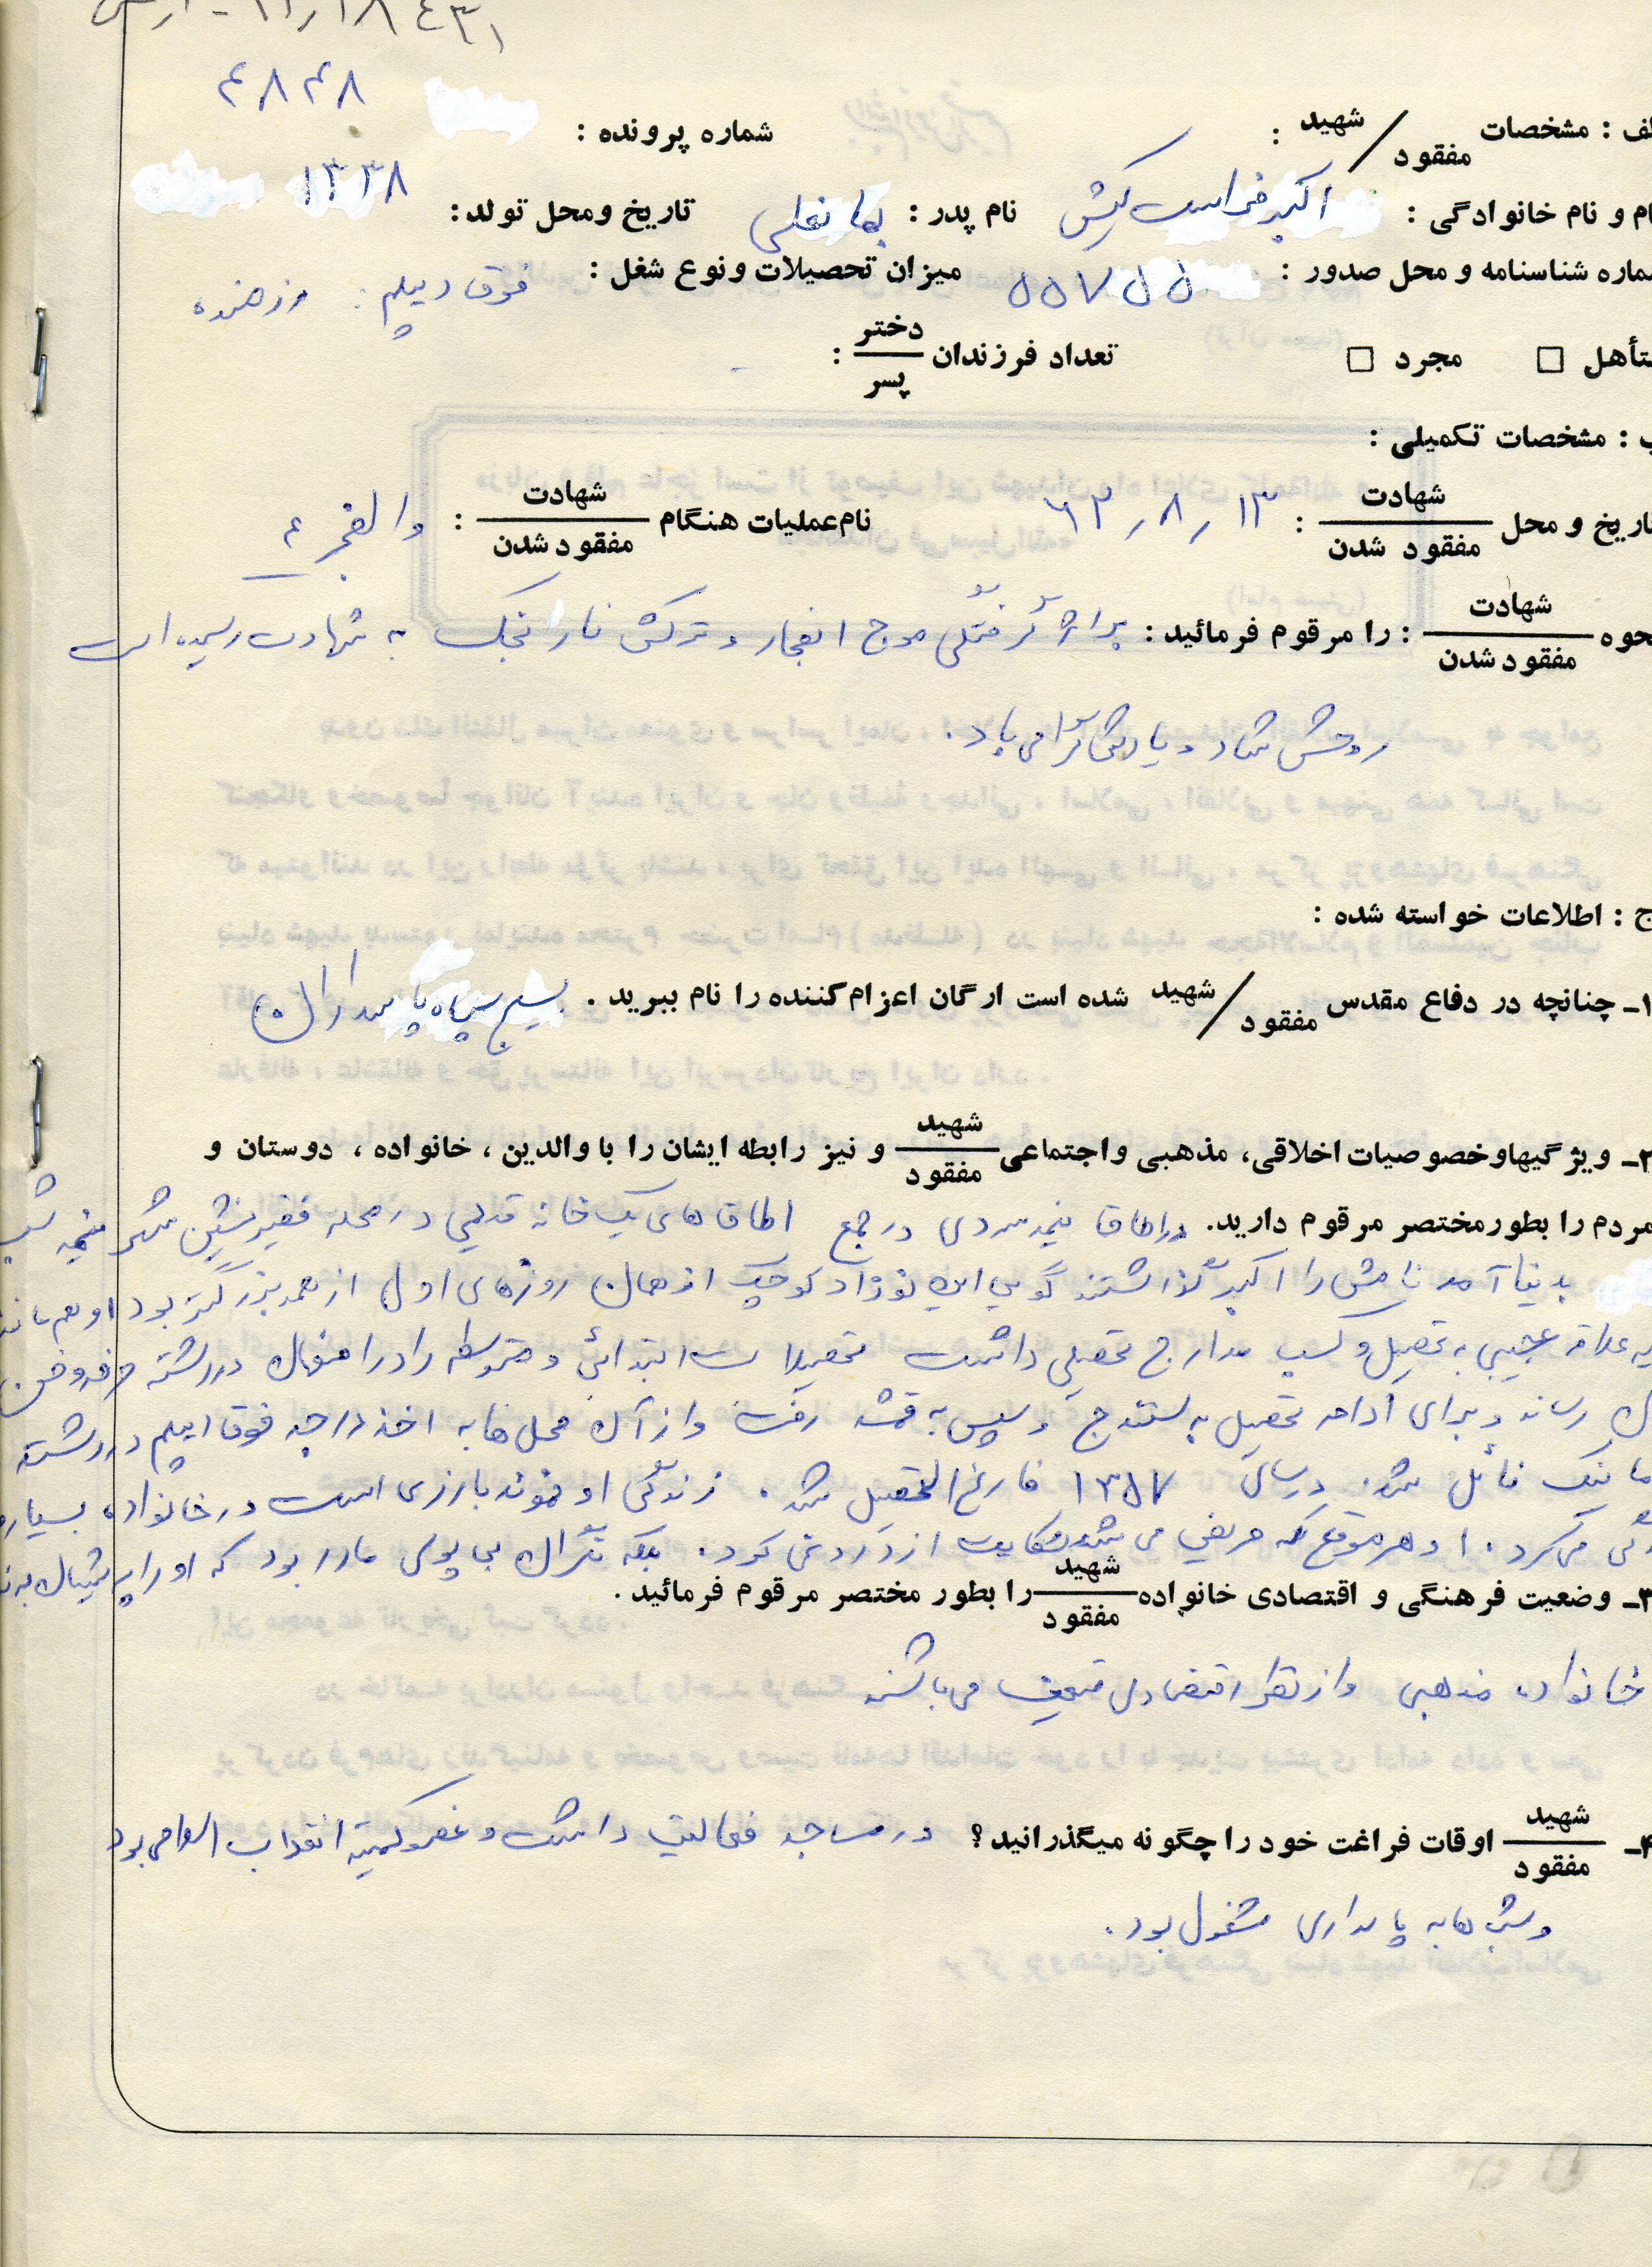 ۴۸۴۸
الف : مشخصات شهید / مفقود : شماره پرونده :
نام و نام خانوادگی : اکبر فراست کیش نام پدر : تاریخ ومحل تولد: ۱۳۳۸
شماره شناسنامه و محل صدور : ۵۵۷۵۵ میزان تحصیلات ونوع شغل : فوق دیپلم : رزمنده
متأهل □ مجرد □ تعداد فرزندان دختر / پسر :
ب : مشخصات تکمیلی :
تاریخ و محل شهادت / مفقود شدن : ۱۳ر۸ر۶۲ نام عملیات هنگام شهادت / مفقود شدن : والفجر ۴
نحوه شهادت / مفقود شدن : را مرقوم فرمائید : براثر گرفتگی موج انفجار و ترکش نارنجک به شهادت رسیده است
روحش شاد و یادش گرامی باد.
ج : اطلاعات خواسته شده :
۱ـ چنانچه در دفاع مقدس شهید / مفقود شده است ارگان اعزام کننده را نام ببرید . بسیج سپاه پاسداران
۲ـ ویژگیهاوخصوصیات اخلاقی، مذهبی واجتماعی شهید / مفقود و نیز رابطه ایشان را با والدین ، خانواده ، دوستان و
مردم را بطورمختصر مرقوم دارید. دراطاق نیمه سردی در جمع اطاق های یک خانه قدیمی در محله فقیر نشین شهر نیمه شب
بدنیا آمد نامش را اکبر گذاشتند گویی این نوزاد کوچک از همان روزهای اول از همه بزرگتر بود او هم مانند
علاقه عجیبی به تحصیل و کسب مدارج تحصیلی داشت تحصیلات ابتدائی و متوسطه را در اصفهان در رشته
رساند و برای ادامه تحصیل به سنندج و سپس به قمشه رفت و از آن محل ها به اخذ درجه فوق دیپلم در رشته
مکانیک نائل شد. درسال ۱۳۵۷ فارغ التحصیل شد. زندگی او نمونه بارزی است در خانواده بسیار
می کرد. او هر موقع که مریض می شد شکایت از درد نمی کرد. بلکه نگران بی پولی مادر بود که او را
۳ـ وضعیت فرهنگی و اقتصادی خانواده شهید / مفقود را بطور مختصر مرقوم فرمائید .
خانواده مذهبی و از نظر اقتصادی ضعیف می باشند
۴ـ شهید / مفقود اوقات فراغت خود را چگونه میگذرانید؟ در مساجد فعالیت داشت و عضو کمیته انقلاب اسلامی بود
وشب ها به پاسداری مشغول بود.